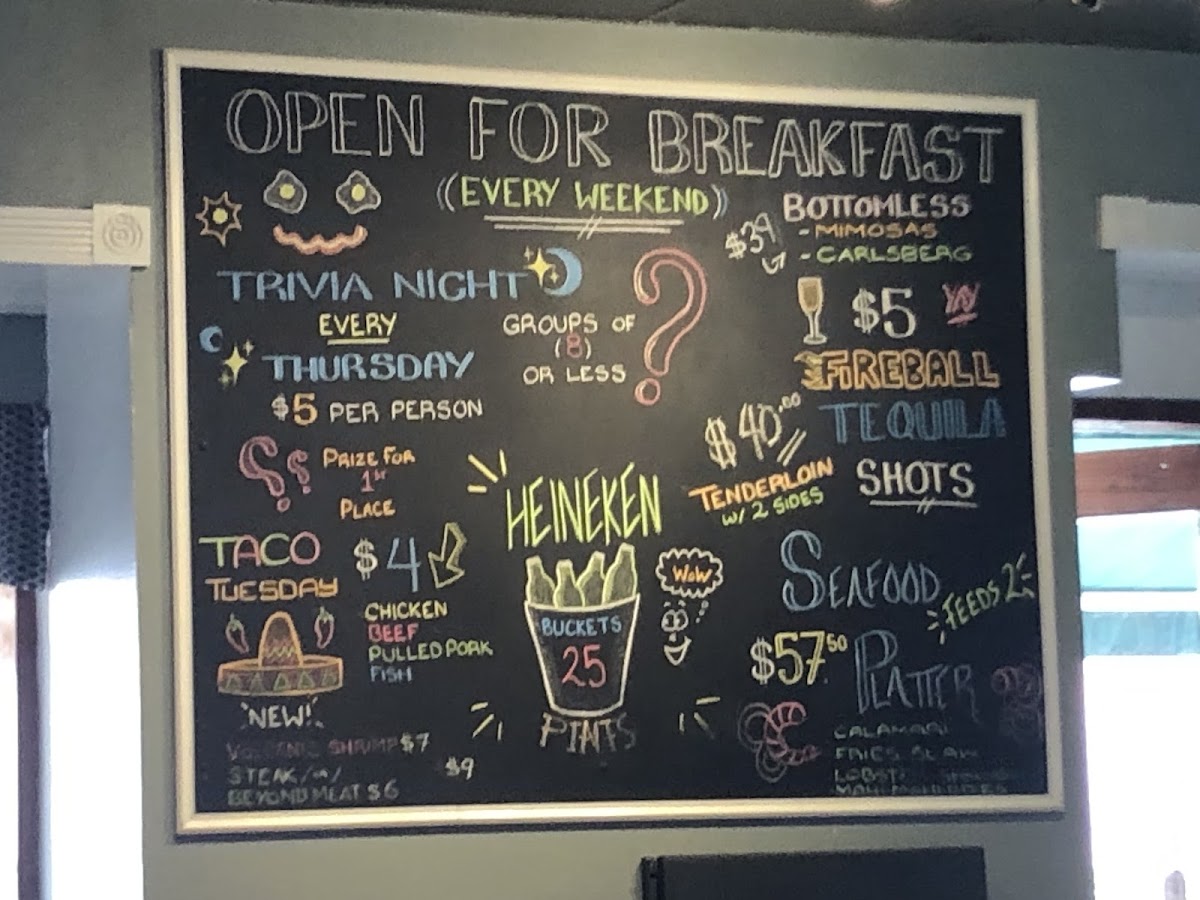 OPEN FOR BREAKFAST
((EVERY WEEKEND))
BOTTOMLESS
$39
- MIMOSAS
- CARLSBERG
TRIVIA NIGHT
EVERY
THURSDAY
$5 PER PERSON
GROUPS OF
(8)
OR LESS
?
PRIZE FOR
1st
PLACE
$5
FIREBALL
TEQUILA
SHOTS
$40.00
TENDERLOIN
W/ 2 SIDES
HEINEKEN
BUCKETS
25
WOW
PINTS
$9
TACO
TUESDAY
$4
CHICKEN
BEEF
PULLED PORK
FISH
NEW!
VOLCANIC SHRIMP $7
STEAK /or/
BEYOND MEAT $6
SEAFOOD
PLATTER
FEEDS 2
$57.50
CALAMARI
FRIES SLAW